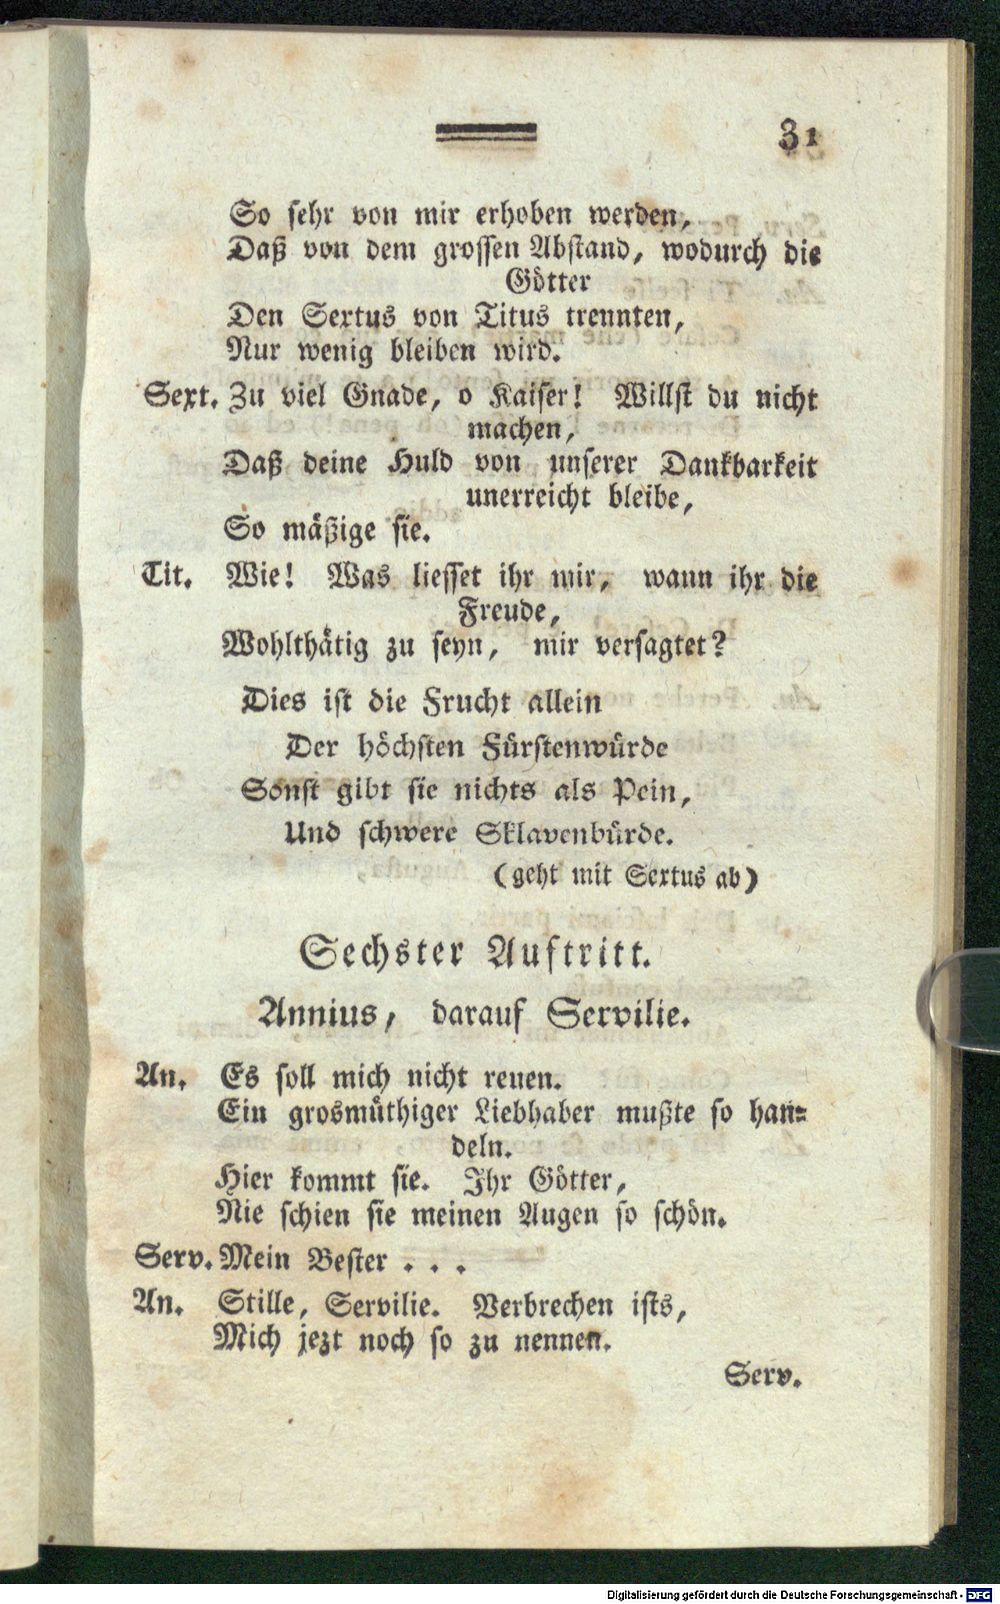 31
So sehr von mir erhoben werden,
Daß von dem grossen Abstand, wodurch die
Götter
Den Sextus von Titus trennten,
Nur wenig bleiben wird.
Sext. Zu viel Gnade, o Kaiser! Willst du nicht
machen,
Daß deine Huld von unserer Dankbarkeit
unerreicht bleibe,
So mäßige sie.
Tit. Wie! Was liesset ihr mir, wann ihr die
Freude,
Wohlthätig zu seyn, mir versagtet?
Dies ist die Frucht allein
Der höchsten Fürstenwürde
Sonst gibt sie nichts als Pein,
Und schwere Sklavenbürde.
(geht mit Sextus ab)
Sechster Auftritt.
Annius, darauf Servilie.
An. Es soll mich nicht reuen.
Ein grosmüthiger Liebhaber mußte so han=
deln.
Hier kommt sie. Ihr Götter,
Nie schien sie meinen Augen so schön.
Serv. Mein Bester . . .
An. Stille, Servilie. Verbrechen ists,
Mich jezt noch so zu nennen.
Serv.
Digitalisierung gefördert durch die Deutsche Forschungsgemeinschaft - DFG